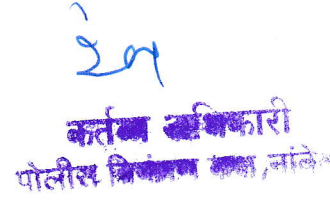 कर्तव्य अधिकारी
पोलीस नियंत्रण कक्ष,